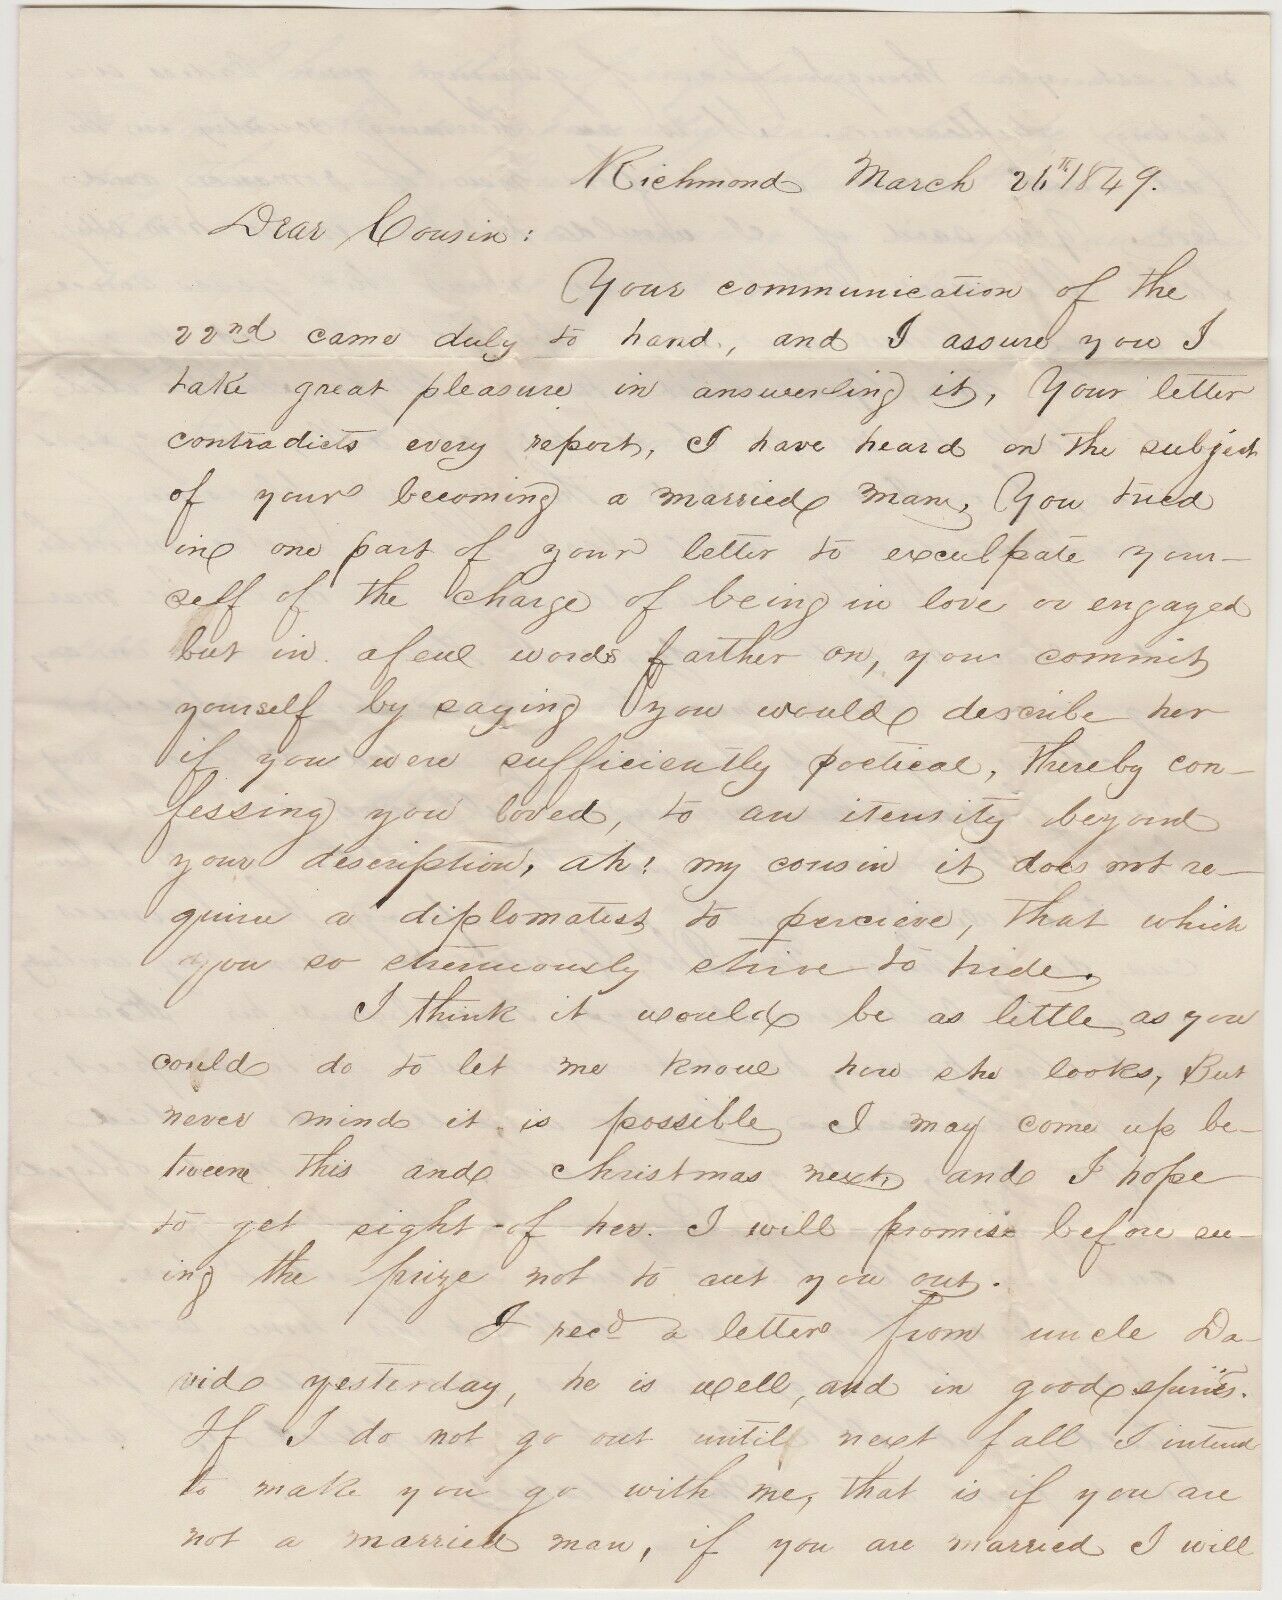 Richmond March 26th 1849.
Dear Cousin:
Your communication of the
22nd came duly to hand, and I assure you I
take great pleasure in answerling it, Your letter
contradicts every report, I have heard on the subject
of your becoming a married man, You tried
in one part of your letter to exculpate your-
self of the charge of being in love or engaged
but in a few words farther on, you commit
yourself by saying you would describe her
if you were sufficiently poetical, thereby con-
fessing you loved, to an itensity beyond
your description, ah! my cousin it does not re-
quire a diplomatest to percieve, that which
you so strenuously strive to hide.
I think it would be as little as you
could do to let me know how she looks, But
never mind it is possible I may come up be-
tween this and Christmas next, and I hope
to get sight of her. I will promise before see-
ing the prize not to cut you out.
I recd a letter from uncle Da-
vid yesterday, he is well, and in good spirits.
If I do not go out until next fall I intend
to make you go with me, that is if you are
not a married man, if you are married I will